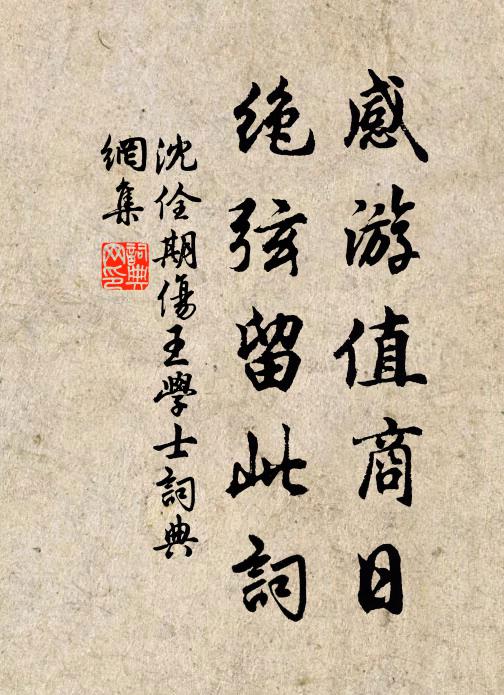 感游值商日
绝弦留此詞
沈佺期傷王學士詞典
網集
詞典
网印